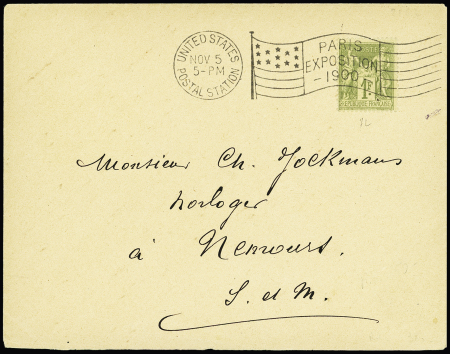 UNITED STATES
NOV 5
5-PM
POSTAL STATION
PARIS
EXPOSITION
1900
POSTE
1F
RÉPUBLIQUE FRANÇAISE
Monsieur Ch. Jockmans
horloger
à Nemours.
S. et M.